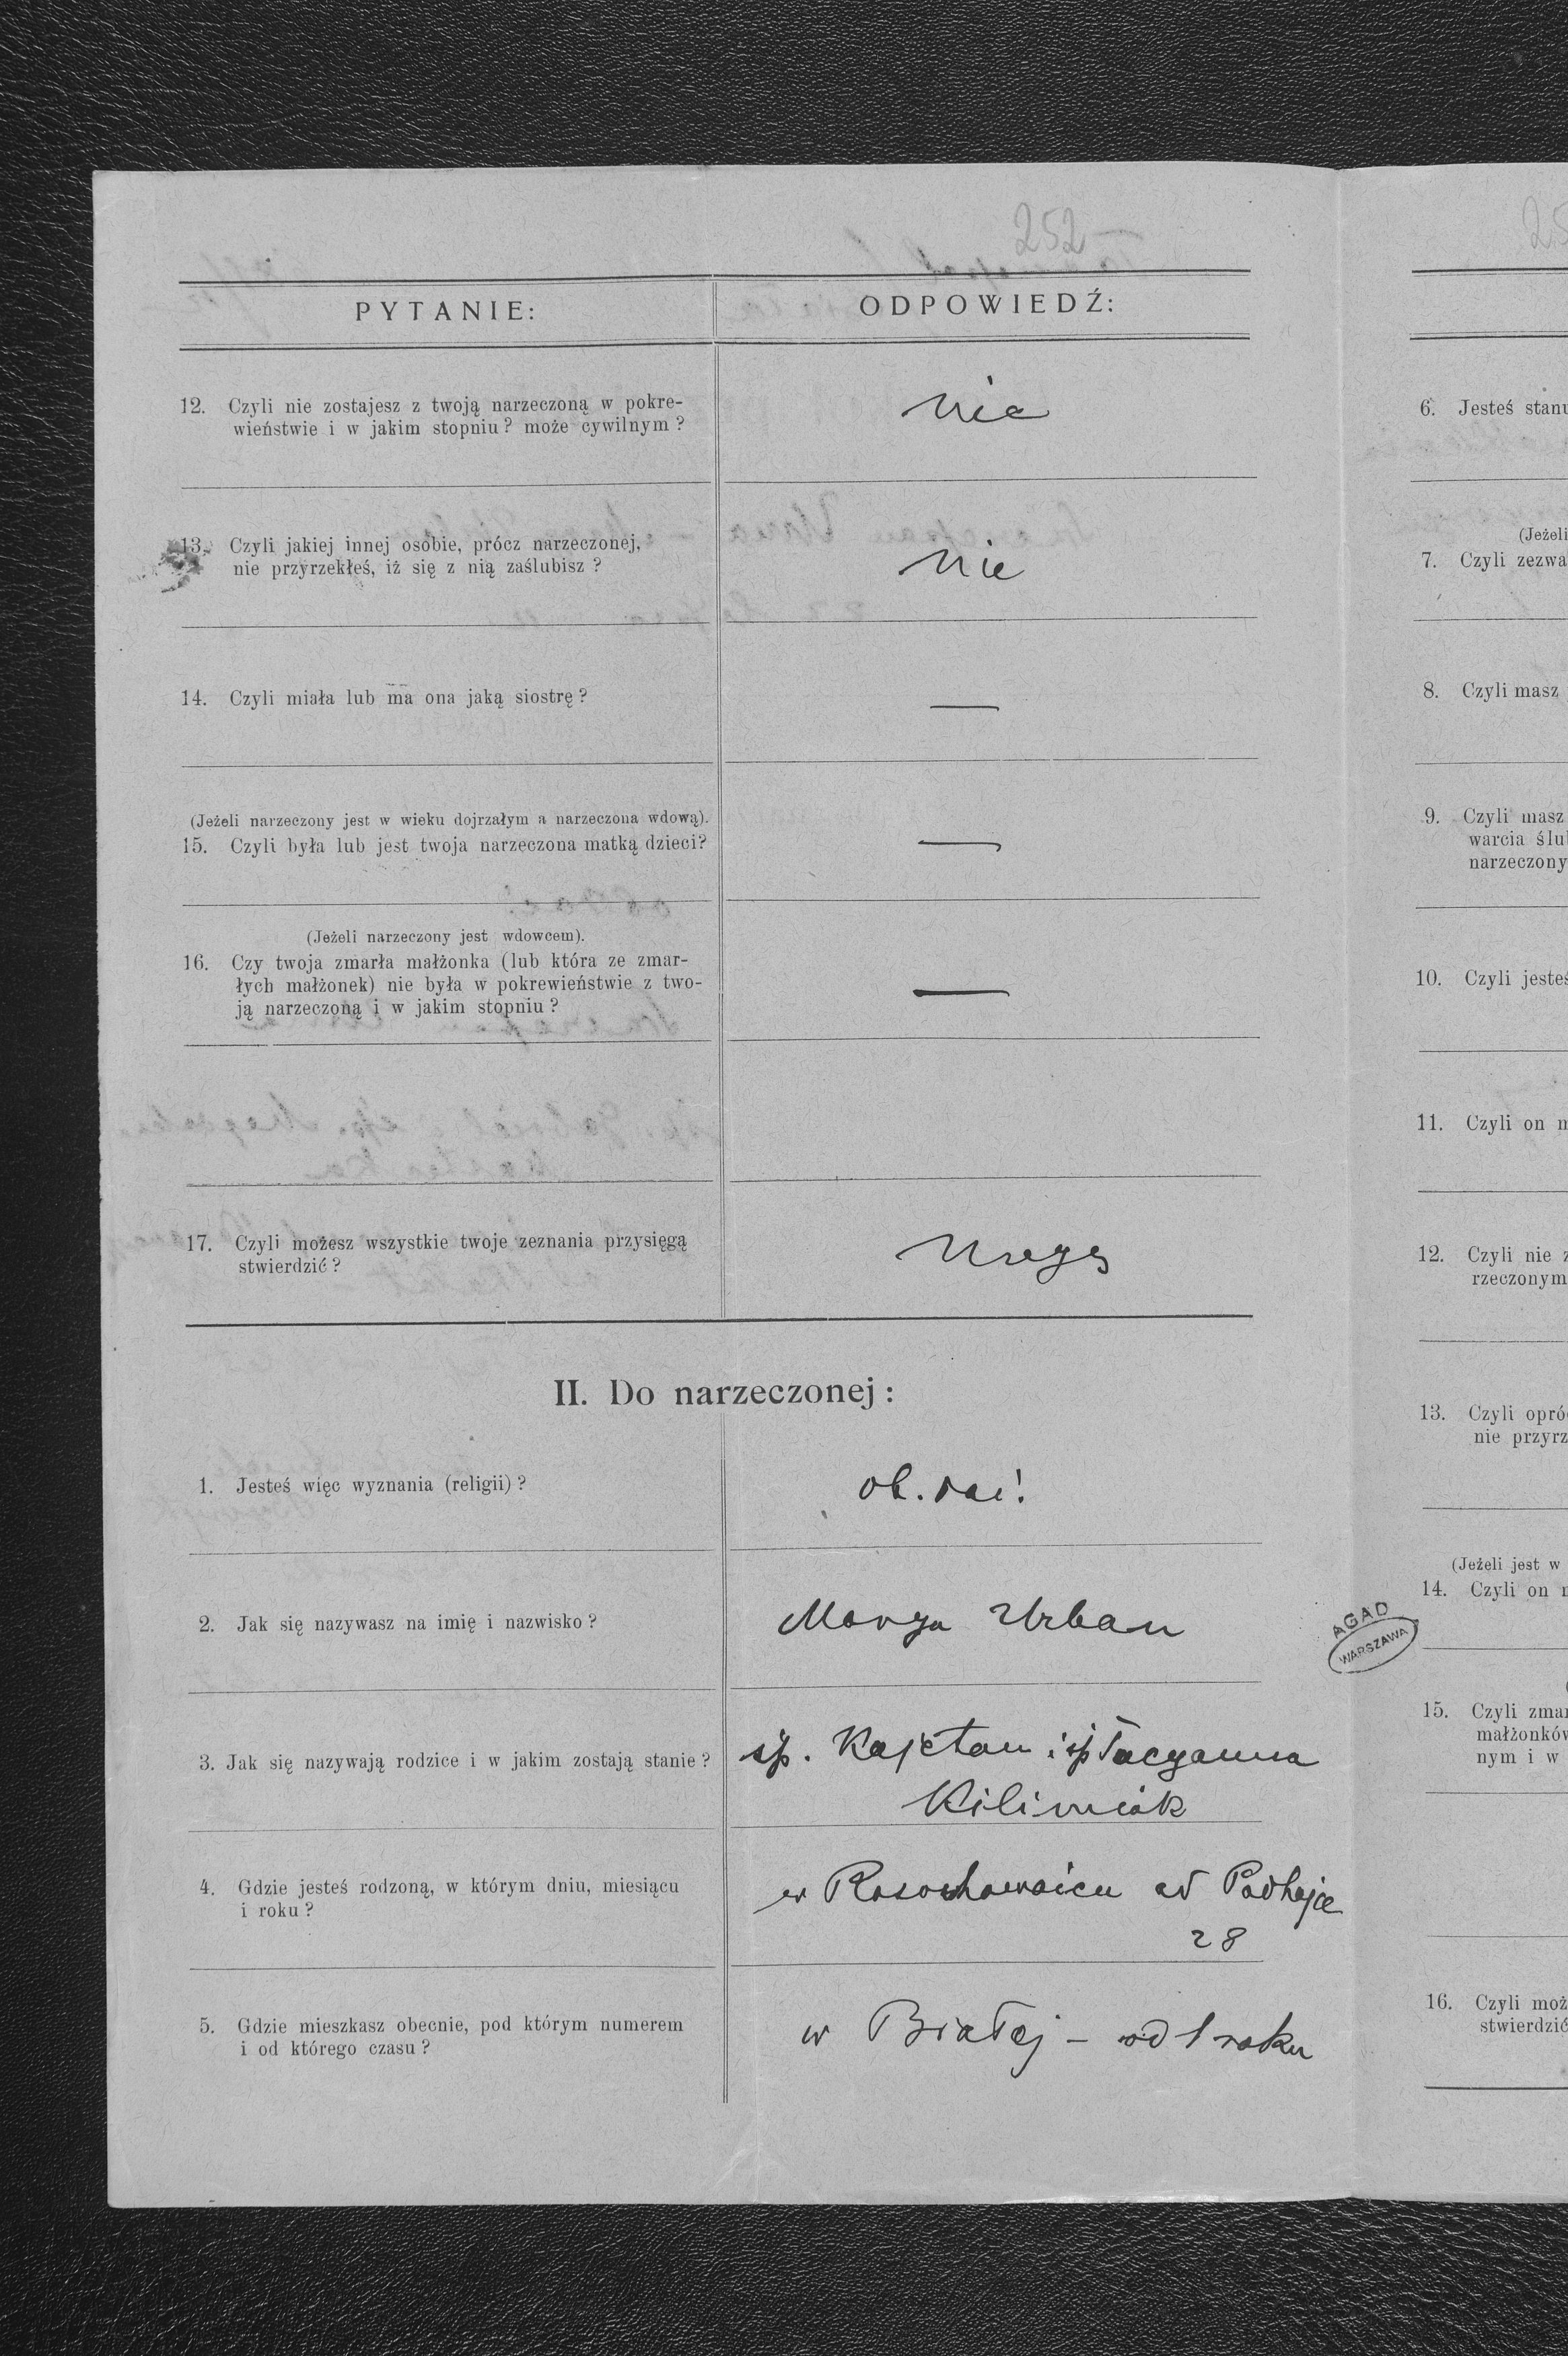 252
PYTANIE: ODPOWIEDŹ:
12. Czyli nie zostajesz z twoją narzeczoną w pokre-
wieństwie i w jakim stopniu? może cywilnym?
nie
13. Czyli jakiej innej osobie, prócz narzeczonej,
nie przyrzekłeś, iż się z nią zaślubisz?
nie
14. Czyli miała lub ma ona jaką siostrę?
—
(Jeżeli narzeczony jest w wieku dojrzałym a narzeczona wdową).
15. Czyli była lub jest twoja narzeczona matką dzieci?
—
(Jeżeli narzeczony jest wdowcem).
16. Czy twoja zmarła małżonka (lub która ze zmar-
łych małżonek) nie była w pokrewieństwie z two-
ją narzeczoną i w jakim stopniu?
—
17. Czyli możesz wszystkie twoje zeznania przysięgą
stwierdzić?
Mogę
II. Do narzeczonej:
1. Jesteś więc wyznania (religii)?
ob. łać.
2. Jak się nazywasz na imię i nazwisko?
Marya Urban
3. Jak się nazywają rodzice i w jakim zostają stanie?
śp. Kajetan i śp
Kilimiak
4. Gdzie jesteś rodzoną, w którym dniu, miesiącu
i roku?
w Rosochowaícu ad Podhajce
28
5. Gdzie mieszkasz obecnie, pod którym numerem
i od którego czasu?
w Białej – od 1 roku
AGAD
WARSZAWA
25
6. Jesteś stanu
(Jeżeli
7. Czyli zezwa
8. Czyli masz
9. Czyli masz
warcia ślu
narzeczony
10. Czyli jesteś
11. Czyli on m
12. Czyli nie z
rzeczonym
13. Czyli opró
nie przyrz
(Jeżeli jest w
14. Czyli on
15. Czyli zmar
małżonków
nym i w
16. Czyli moż
stwierdzić